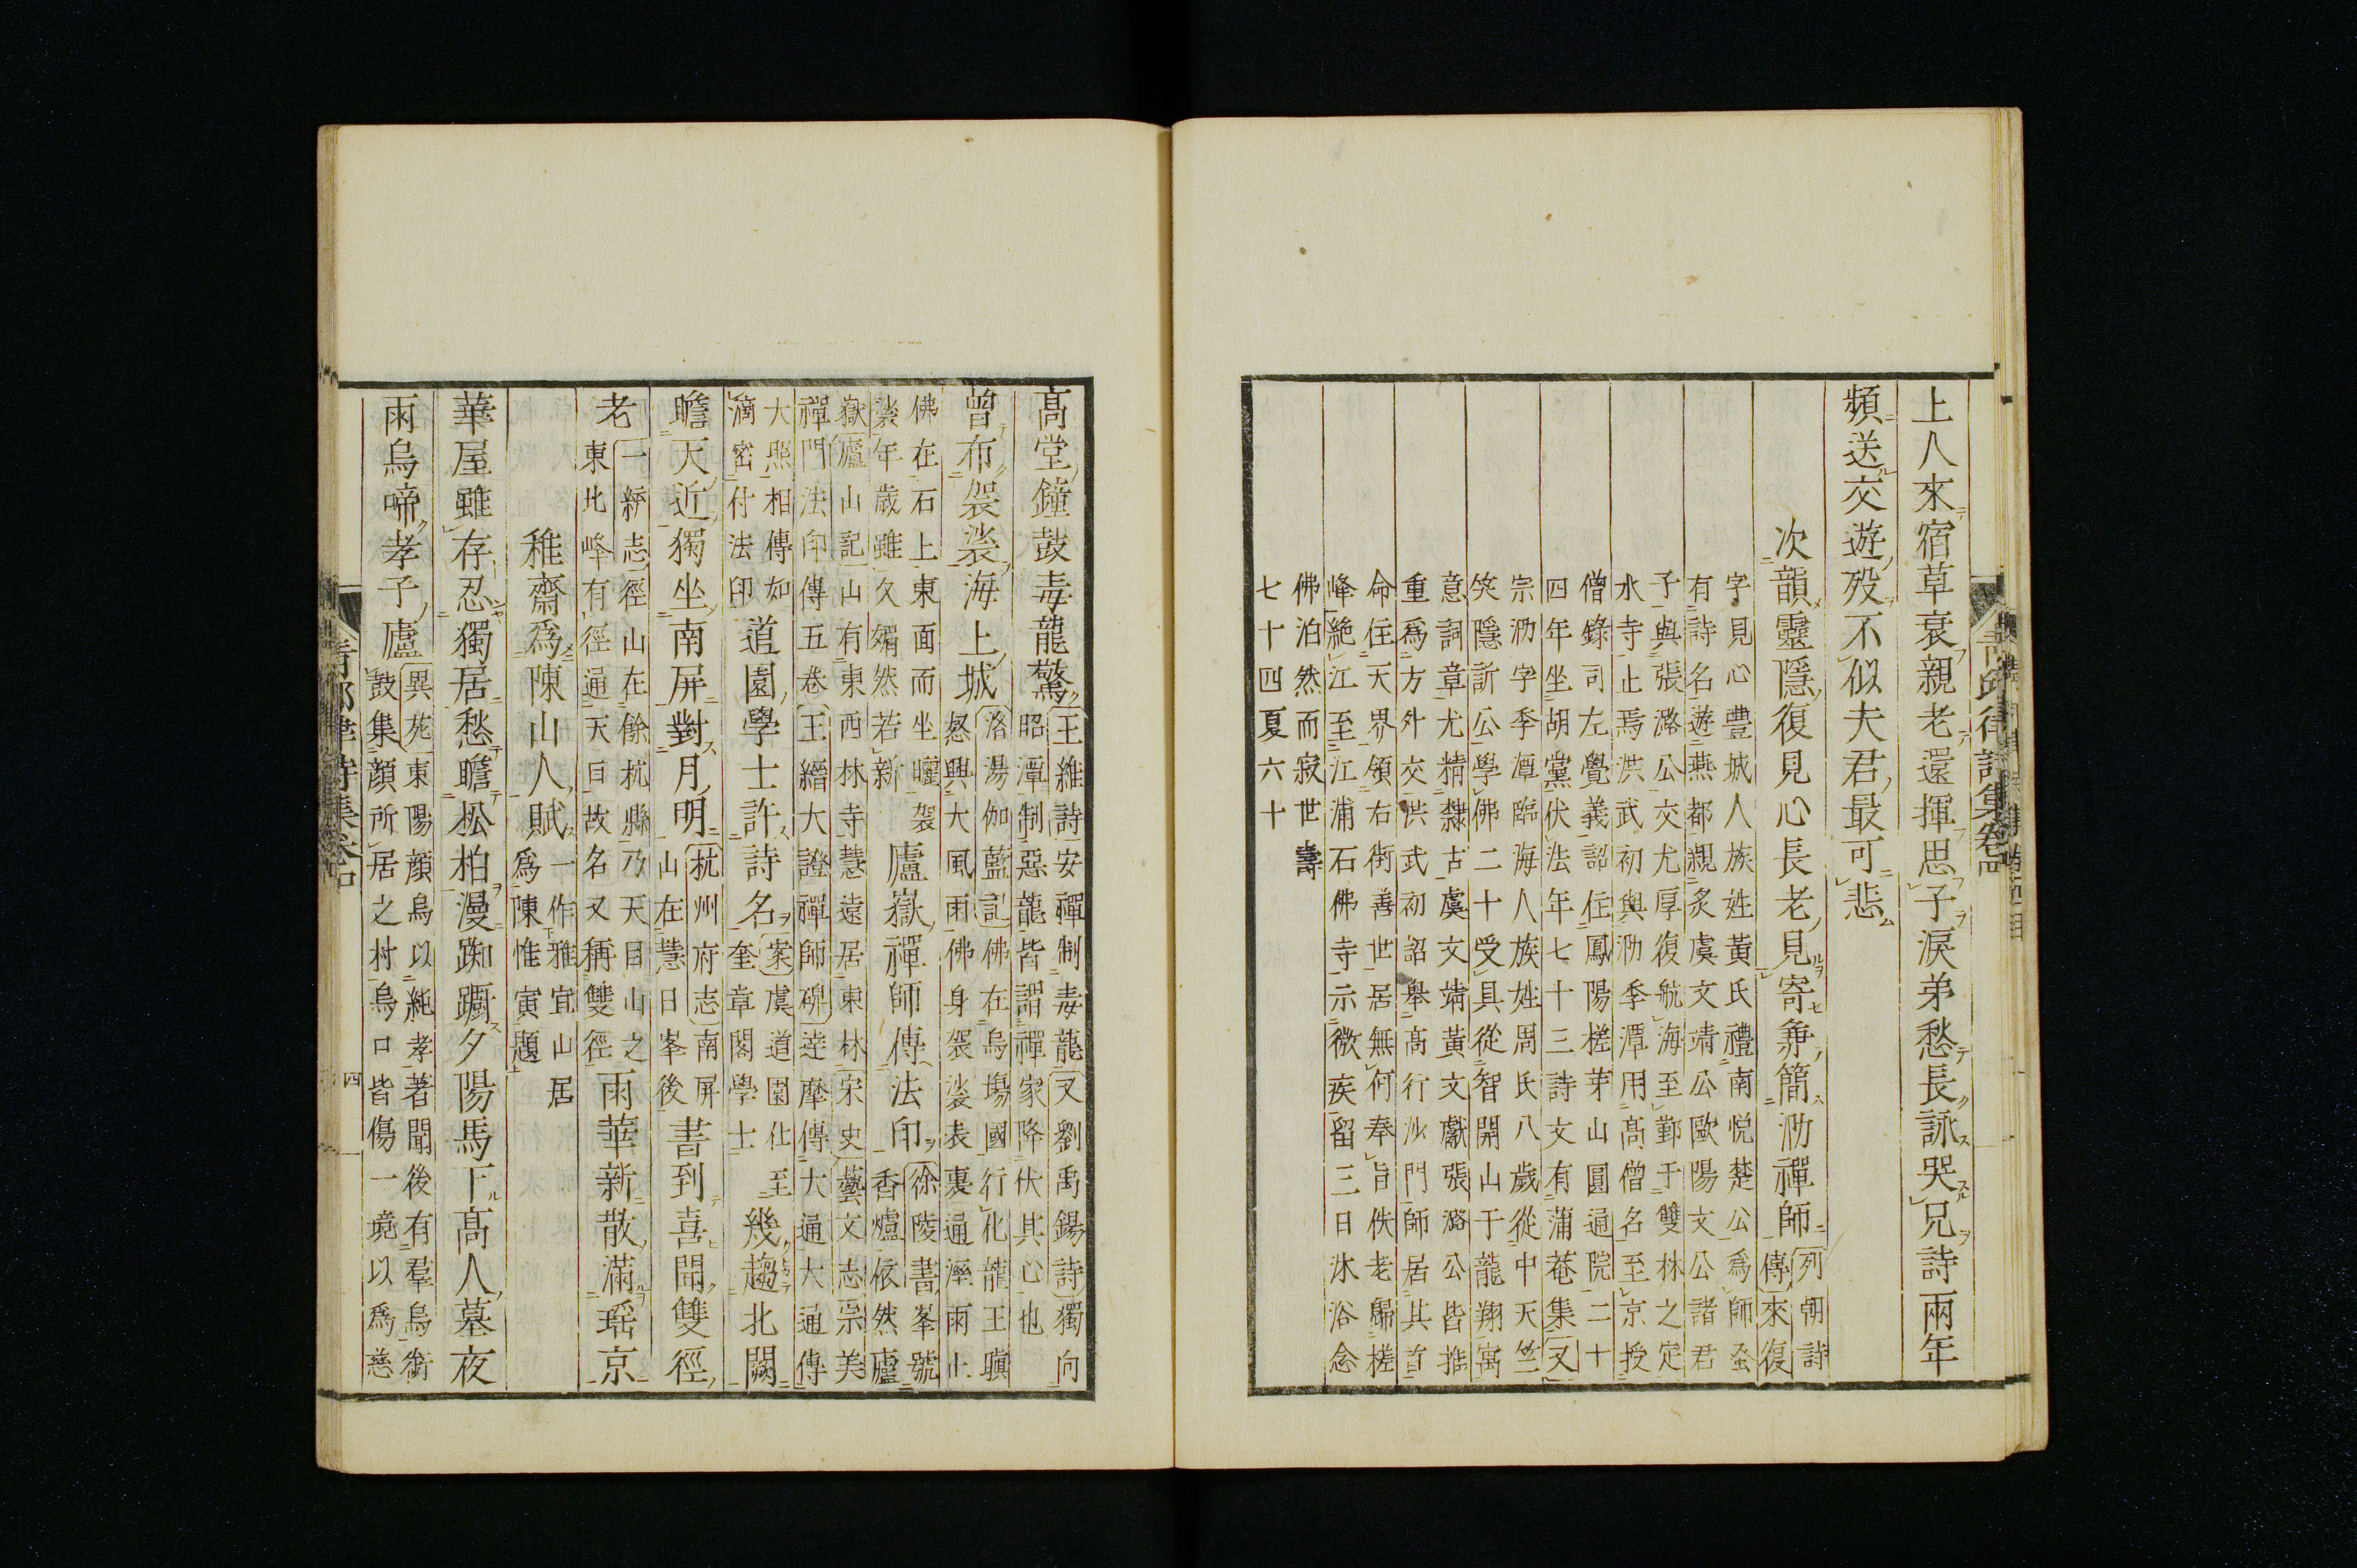 上人來宿草衰親老還揮思子淚弟愁長詠哭兄詩兩年
頻送交遊歿不似夫君最可悲
次韻靈隱復見心長老見寄兼簡泐禪師 列朝詩
傳來復
字見心豐城人族姓黃氏禮南悅楚公爲師蚤
有詩名遊燕都親炙虞文靖公歐陽文公諸君
子與張潞公交尤厚復航海至鄞于雙林之定
水寺止焉洪武初與泐季潭用高僧名至京授
僧錄司左覺義詔住鳳陽槎芽山圓通院二十
四年坐胡黨伏法年七十三詩文有蒲菴集又
宗泐字季潭臨海人族姓周氏八歲從中天竺
笑隱訢公學佛二十受具從智開山于龍翔寓
意詞章尤精隸古虞文靖黃文獻張潞公皆推
重爲方外交洪武初詔舉高行沙門師居其首
命住天界領右街善世居無何奉旨佚老歸槎
峰絕江至江浦石佛寺示微疾留三日沐浴念
佛泊然而寂世壽
七十四夏六十
高堂鐘鼓毒龍驚 王維詩安禪制毒龍又劉禹錫詩獨向
昭潭制惡龍皆謂禪家降伏其心也
曾布袈裟海上城 洛湯伽藍記佛在烏場國行化龍王瞋
怒興大風雨佛身袈裟表裏通溼雨止
佛在石上東面而坐曬袈
裟年歲雖久㛹然若新
廬嶽禪師傳法印 徐陵書峯號
香爐依然廬
嶽廬山記山有東西林寺慧遠居東林宋史藝文志宗美
禪門法印傳五卷王縉大證禪師碑達摩傳大通大通傳
大照相傳如
滴密付法印
道園學士許詩名 案虞道園仕至
奎章閣學士
幾趨北闕
瞻天近獨坐南屏對月明 杭州府志南屏
山在慧日峯後
書到喜聞雙徑
老 一綂志徑山在餘杭縣乃天目山之
東北峰有徑通天目故名又稱雙徑
雨華新散滿瑶京
稚齋爲陳山人賦 一作雅宜山居
爲陳惟寅題
華屋雖存忍獨居愁瞻松柏漫踟躕夕陽馬下高人墓夜
雨烏啼孝子廬 異苑東陽顏烏以純孝著聞後有羣烏銜
鼓集顏所居之村烏口皆傷一境以爲慈
四